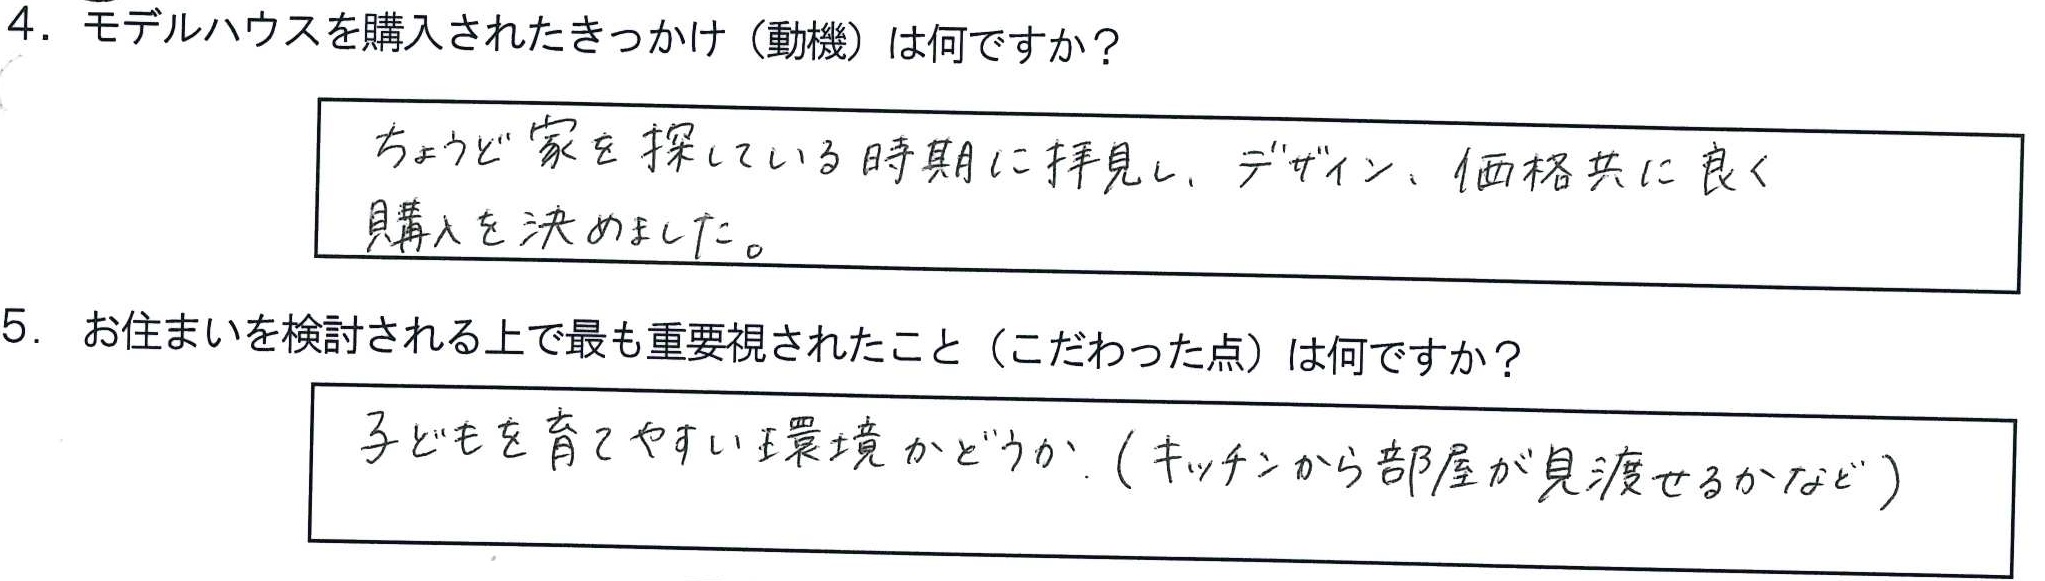 4．モデルハウスを購入されたきっかけ（動機）は何ですか？
ちょうど家を探している時期に拝見し、デザイン、価格共に良く
購入を決めました。
5．お住まいを検討される上で最も重要視されたこと（こだわった点）は何ですか？
子どもを育てやすい環境かどうか.（キッチンから部屋が見渡せるかなど）